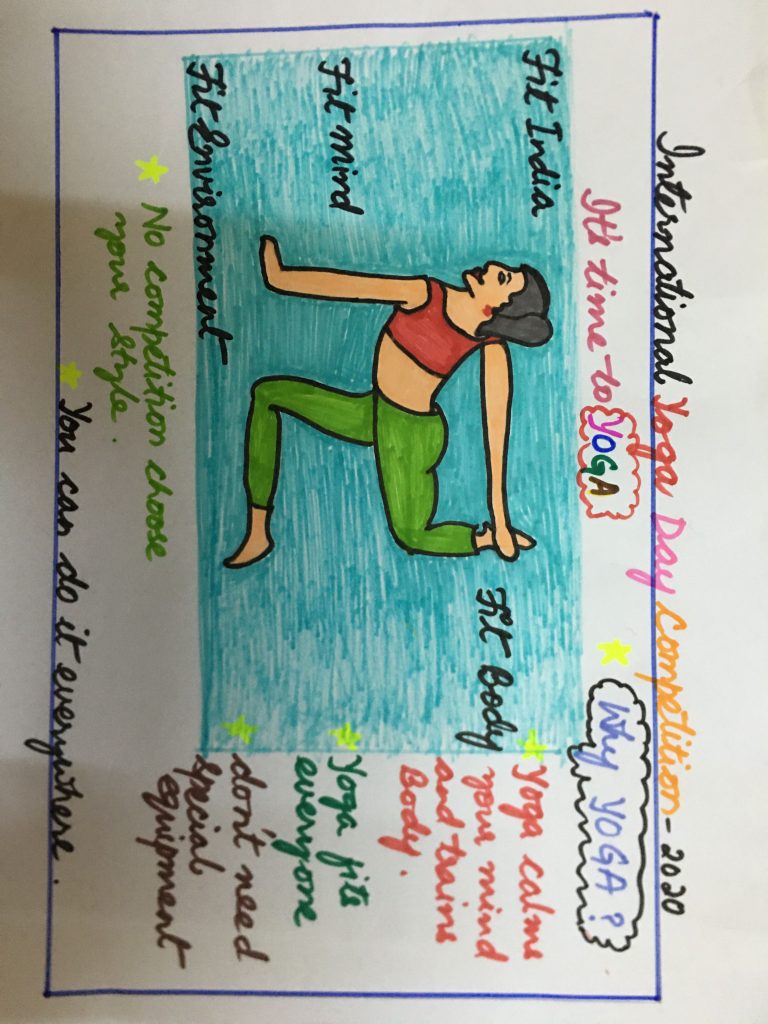 International Yoga Day Competition-2020
It's time to YOGA
Why YOGA?
Fit India
Fit mind
Fit Environment
Fit Body
Yoga calms
your mind
and trains
Body.
Yoga fits
everyone
don't need
special
equipment
No competition choose
your style.
You can do it everywhere.